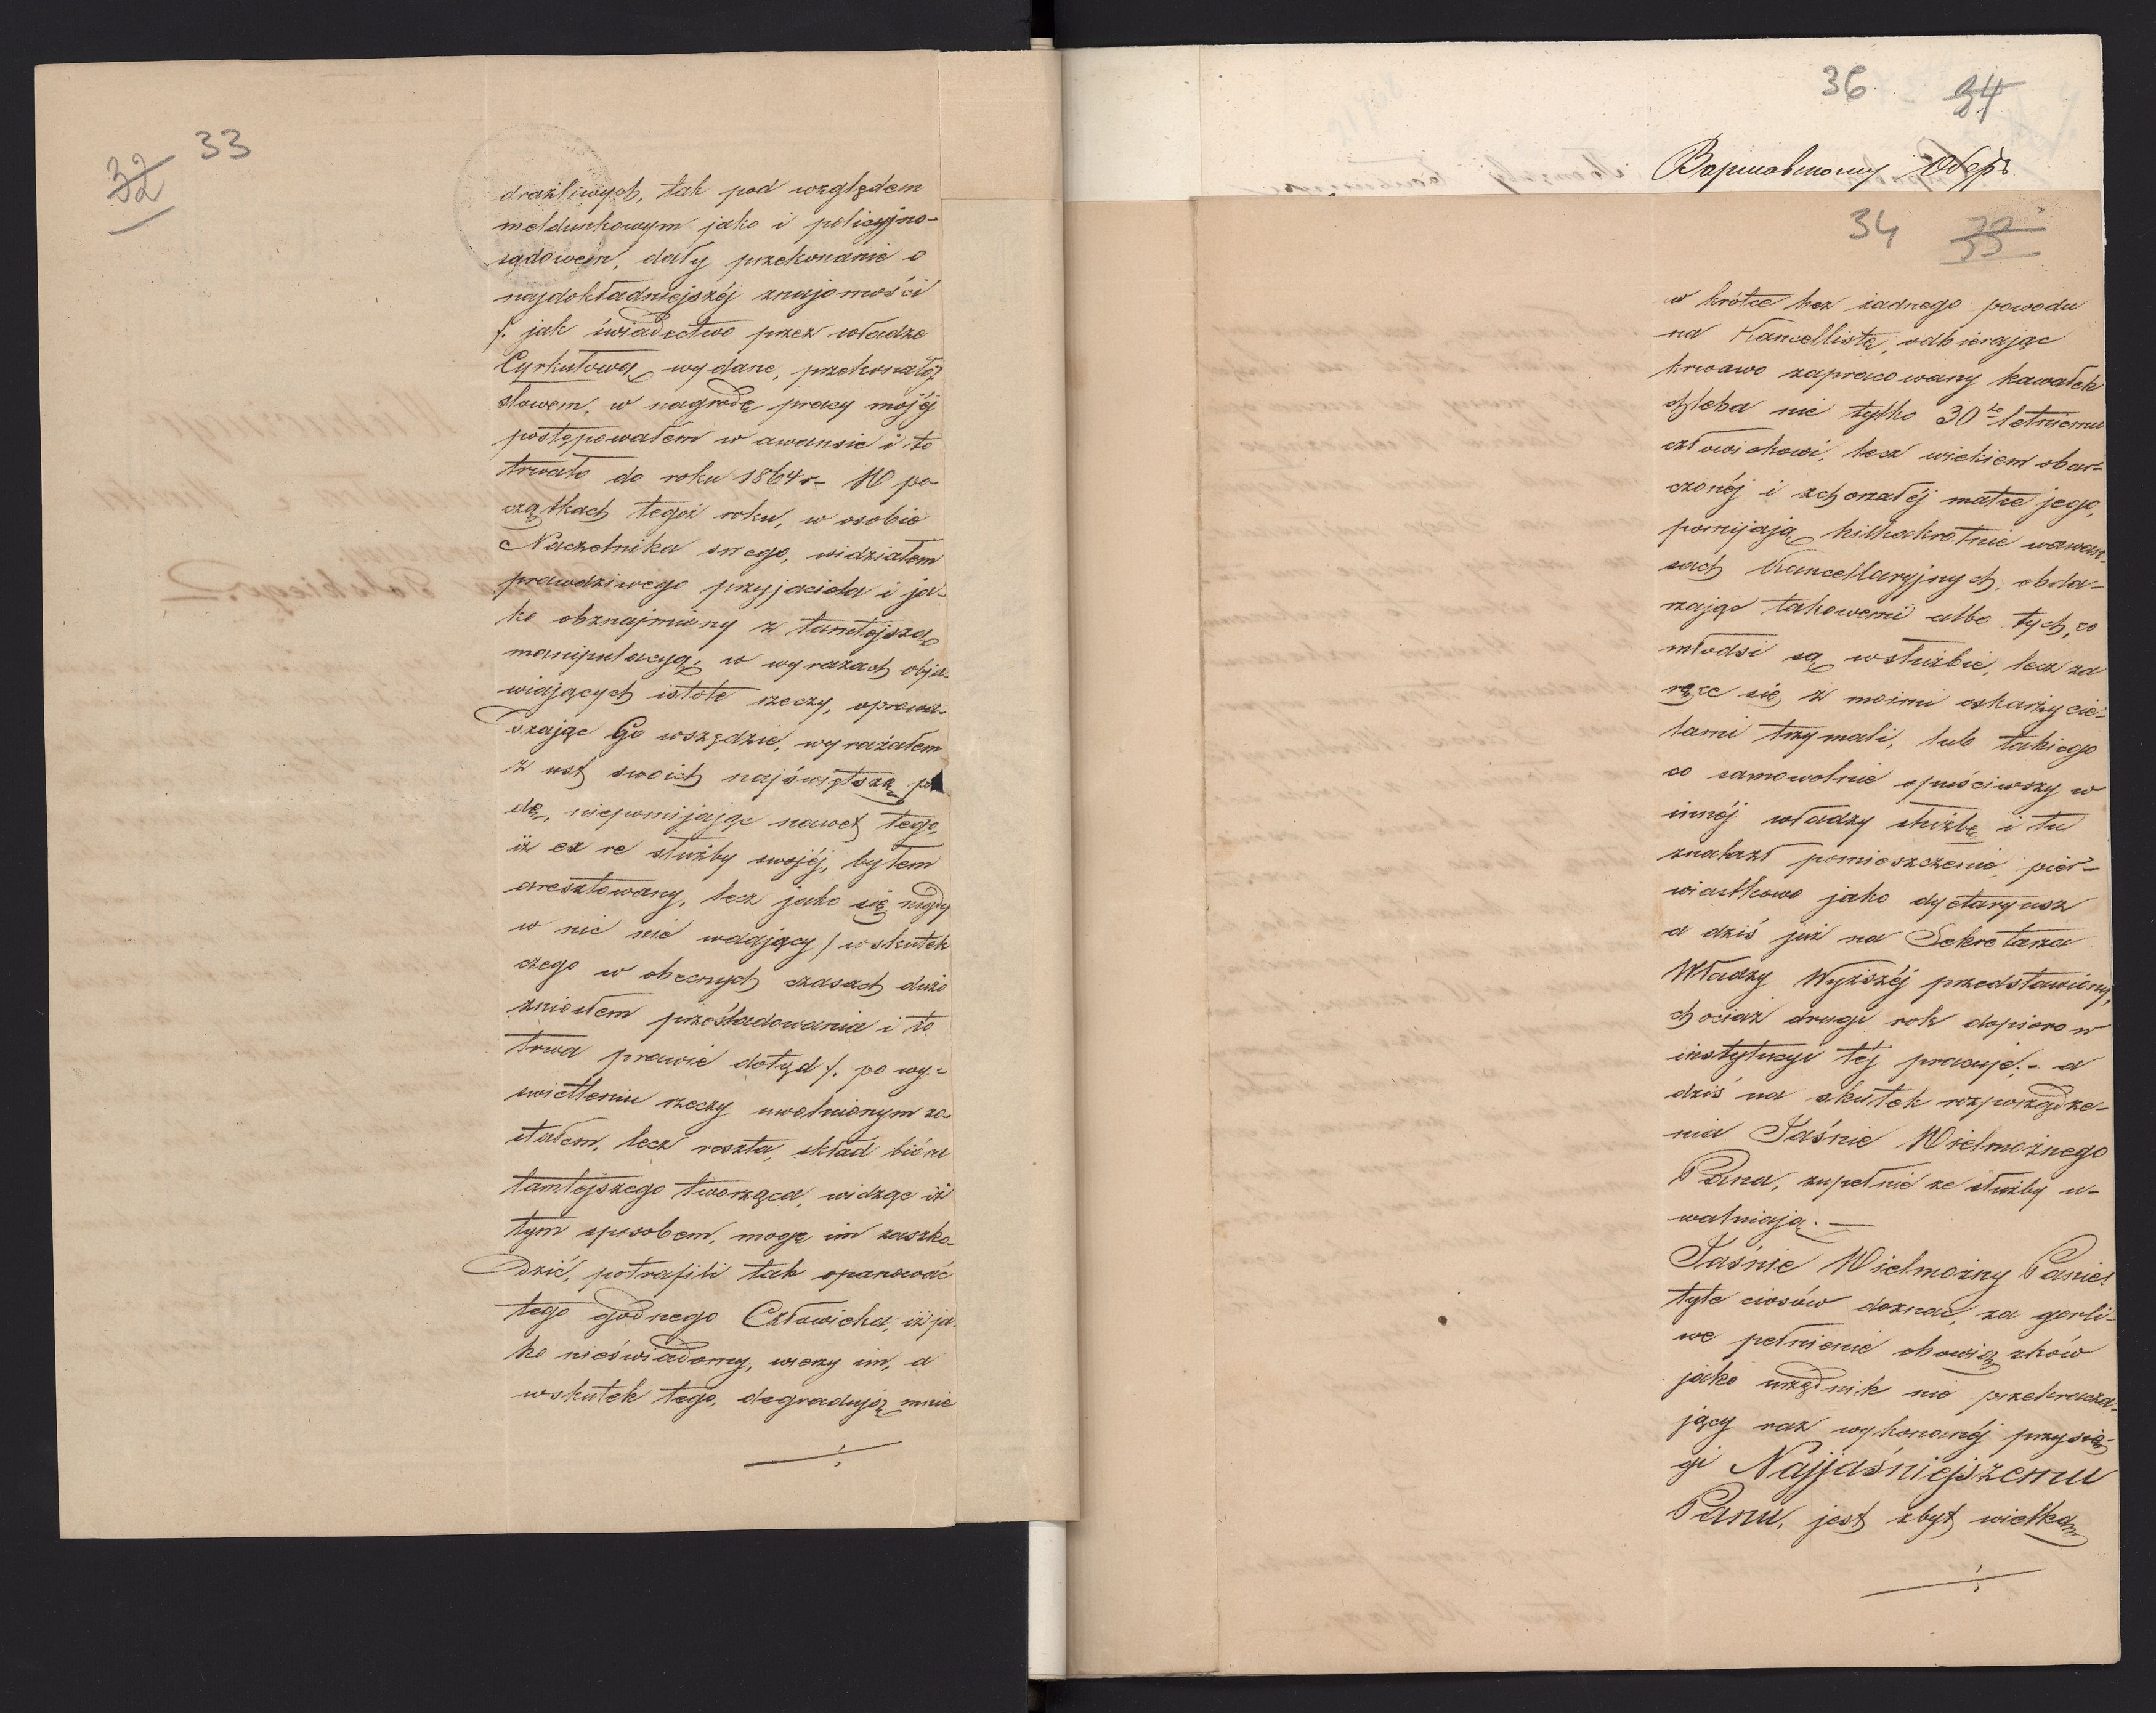 33
32
drażliwych, tak pod względem
meldunkowym jako i policyjno-
sądowem, dały przekonanie o
najdokładniejszéj znajomości
/. jak świadectwo przez władze
Cyrkułową wydane, przekonało./
słowem, w nagrodę pracy mojéj
postępowałem w awansie i to
trwało do roku 1864 r. W po-
czątkach tegoż roku, w osobie
Naczelnika swego, widziałem
prawdziwego przyjaciela i ja-
ko obznajmiony z tamtejszą
manipulacyą, w wyrazach obja-
wiających istote rzeczy, oprowa-
dzając Go wszędzie, wyrażałem
z ust swoich najświętszą
dę, niepomijając nawet tego,
iż ex re służby swojéj, byłem
aresztowany, lecz jako się nigdy
w nic nie wdający / w skutek
czego w obecnych czasach dużo
zniosłem prześladowania i to
trwa prawie dotąd /. po wy-
świetleniu rzeczy uwolnionym zo-
stałem, lecz reszta, skład bióra
tamtejszego tworząca, widząc iż
tym sposobem, mogę im zaszko-
dzić, potrafili tak opanować
tego godnego Człowieka, iż ja-
ko nieświadomy, wierzy im, a
wskutek tego, degradują mnie
36 34
Варшавскому Оберъ
34 33
w krótce bez żadnego powodu
na Kancellistę, odbierając
krwawo zapracowany kawałek
chleba nie tylko 30to letniemu
człowiekowi, lecz wiekiem obar-
czonéj i zchorzałéj matce jego,
pomijają kilkakrotnie w awan-
sach Kancellaryjnych, obda-
rzając takowemi albo tych, co
młodsi są w służbie, lecz za
ręce się z moimi oskarżycie-
lami trzymali, lub takiego
co samowolnie opuściwszy w
innéj władzy służbę i tu
znalazł pomieszczenie, pier-
wiastkowo jako dyetaryusz
a dziś już na Sekretarza
Władzy Wyższéj przedstawiony,
chociaż drugi rok dopiero w
instytucyi téj pracuje.- a
dziś na skutek rozporządze-
nia Jaśnie Wielmożnego
Pana, zupełnie ze służby u-
walniają. —
Jaśnie Wielmożny Panie!
tyle ciosów doznać, za gorli-
we pełnienie obowiązków
jako urzędnik nie przekracza-
jący raz wykonanéj przysię-
gi Najjaśniejszemu
Panu, jest zbyt wielką